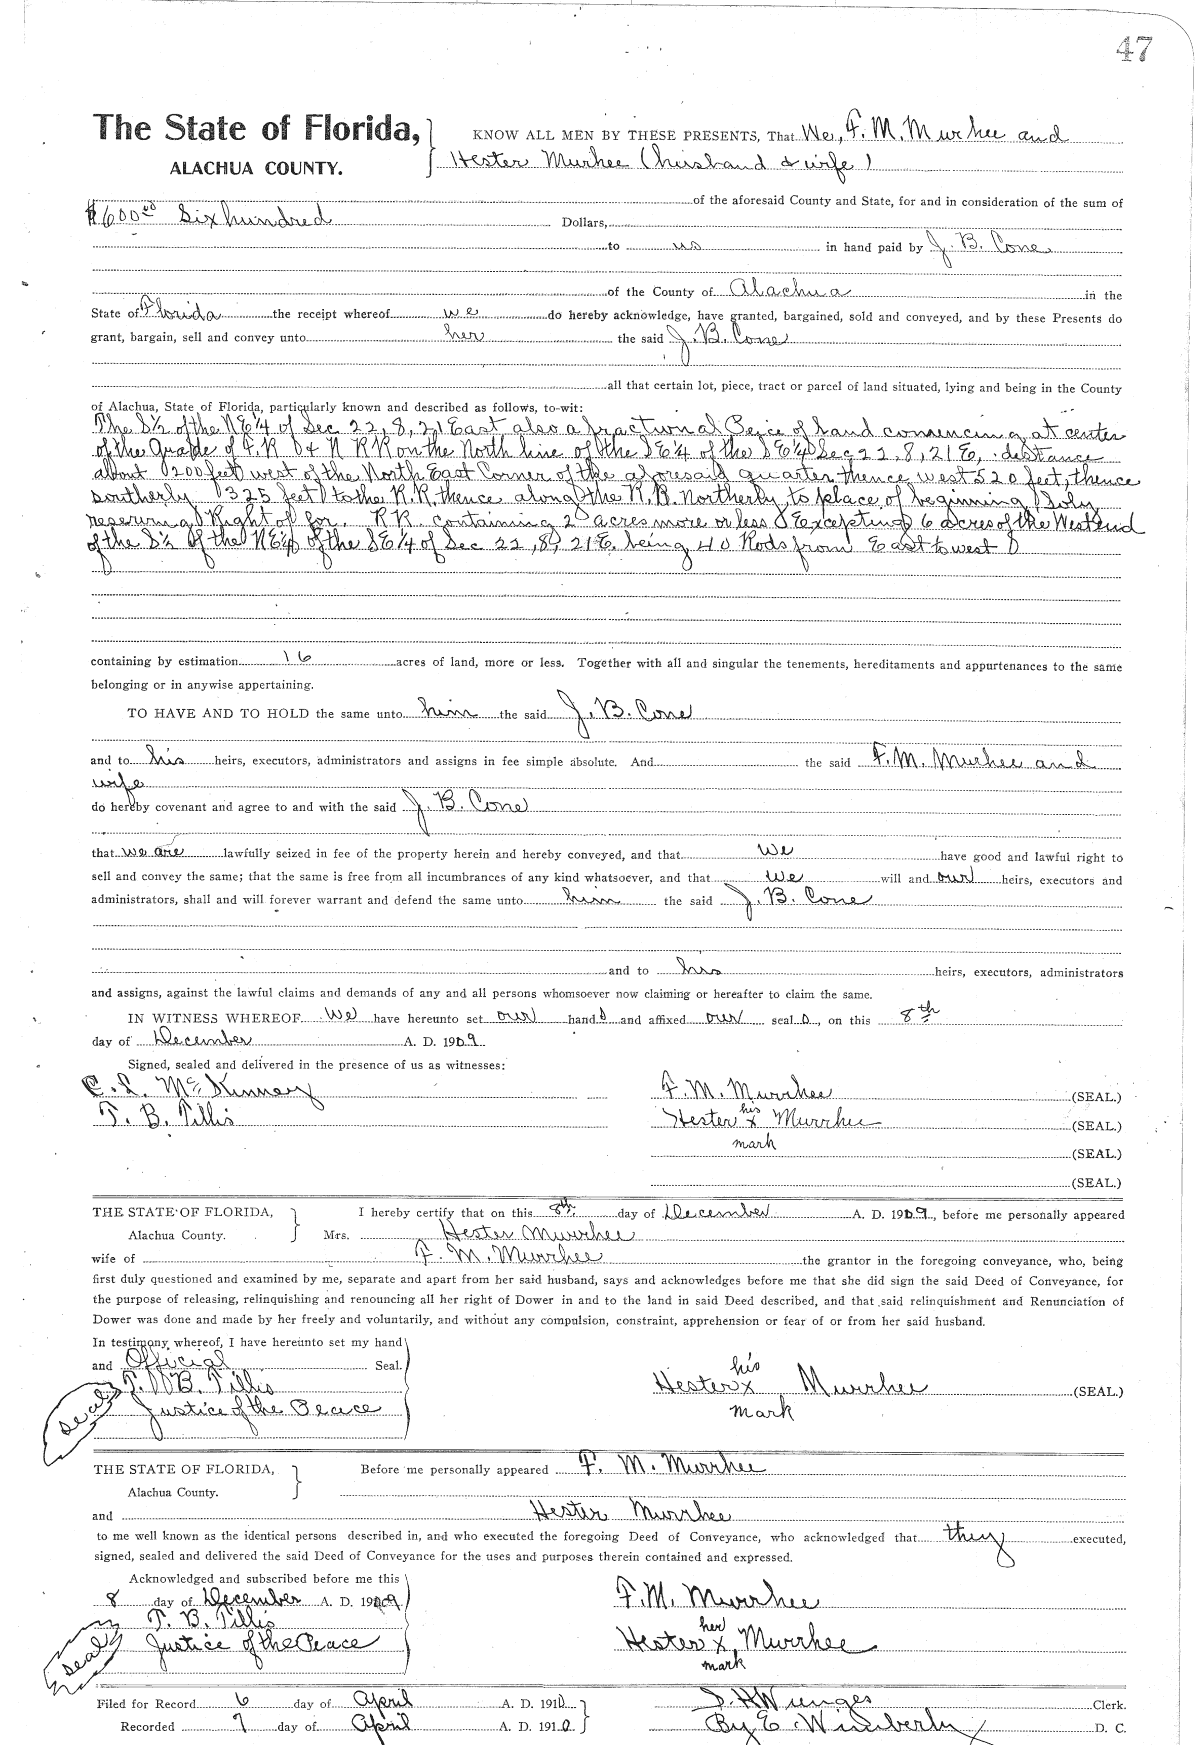 47
The State of Florida, KNOW ALL MEN BY THESE PRESENTS, That We, F. M. Murhee and
ALACHUA COUNTY. Hester Murhee (husband & wife)
of the aforesaid County and State, for and in consideration of the sum of
$600.00 Six hundred Dollars,
to us in hand paid by J. B. Cone
of the County of Alachua in the
State of Florida the receipt whereof we do hereby acknowledge, have granted, bargained, sold and conveyed, and by these Presents do
grant, bargain, sell and convey unto her the said J. B. Cone
all that certain lot, piece, tract or parcel of land situated, lying and being in the County
of Alachua, State of Florida, particularly known and described as follows, to-wit:
The S½ of the NE¼ of Sec 22, 8, 21 East also a fractional Peice of Land commencing at center
of the Grade of F. R & N R R on the North line of the SE¼ of the SE¼ Sec 22, 8, 21 E, distance
about 200 feet west of the North East Corner of the aforesaid quarter, thence west 520 feet, thence
southerly 325 feet to the R. R. thence along the R. R. Northerly to place of beginning
reserving Right of for R R. containing 2 acres more or less Excepting 6 acres of the West end
of the S½ of the NE¼ of the SE¼ of Sec 22, 8, 21 E. being 40 Rods from East to west
containing by estimation 16 acres of land, more or less. Together with all and singular the tenements, hereditaments and appurtenances to the same
belonging or in anywise appertaining.
TO HAVE AND TO HOLD the same unto him the said J. B. Cone
and to his heirs, executors, administrators and assigns in fee simple absolute. And the said F. M. Murhee and
wife
do hereby covenant and agree to and with the said J. B. Cone
that we are lawfully seized in fee of the property herein and hereby conveyed, and that we have good and lawful right to
sell and convey the same; that the same is free from all incumbrances of any kind whatsoever, and that we will and our heirs, executors and
administrators, shall and will forever warrant and defend the same unto him the said J. B. Cone
and to his heirs, executors, administrators
and assigns, against the lawful claims and demands of any and all persons whomsoever now claiming or hereafter to claim the same.
IN WITNESS WHEREOF We have hereunto set our hand s and affixed our seal s, on this 8th
day of December A. D. 1909
Signed, sealed and delivered in the presence of us as witnesses:
C. L. McKinney F. M. Murrhee (SEAL.)
T. B. Tillis Hester his x mark Murrhee (SEAL.)
(SEAL.)
(SEAL.)
THE STATE OF FLORIDA, I hereby certify that on this 8th day of December A. D. 1909, before me personally appeared
Alachua County. Mrs. Hester Murrhee
wife of F. M. Murrhee the grantor in the foregoing conveyance, who, being
first duly questioned and examined by me, separate and apart from her said husband, says and acknowledges before me that she did sign the said Deed of Conveyance, for
the purpose of releasing, relinquishing and renouncing all her right of Dower in and to the land in said Deed described, and that said relinquishment and Renunciation of
Dower was done and made by her freely and voluntarily, and without any compulsion, constraint, apprehension or fear of or from her said husband.
In testimony whereof, I have hereunto set my hand
and Official Seal.
T. B. Tillis Hester his x mark Murrhee (SEAL.)
Seal Justice of the Peace
THE STATE OF FLORIDA, Before me personally appeared F. M. Murrhee
Alachua County.
and Hester Murrhee
to me well known as the identical persons described in, and who executed the foregoing Deed of Conveyance, who acknowledged that they executed,
signed, sealed and delivered the said Deed of Conveyance for the uses and purposes therein contained and expressed.
Acknowledged and subscribed before me this
8 day of December A. D. 1909 F. M. Murrhee
T. B. Tillis
Seal Justice of the Peace Hester her x mark Murrhee
Filed for Record 6 day of April A. D. 1910 S. H. Wienges Clerk.
Recorded 7 day of April A. D. 1910 By E. Wimberly D. C.